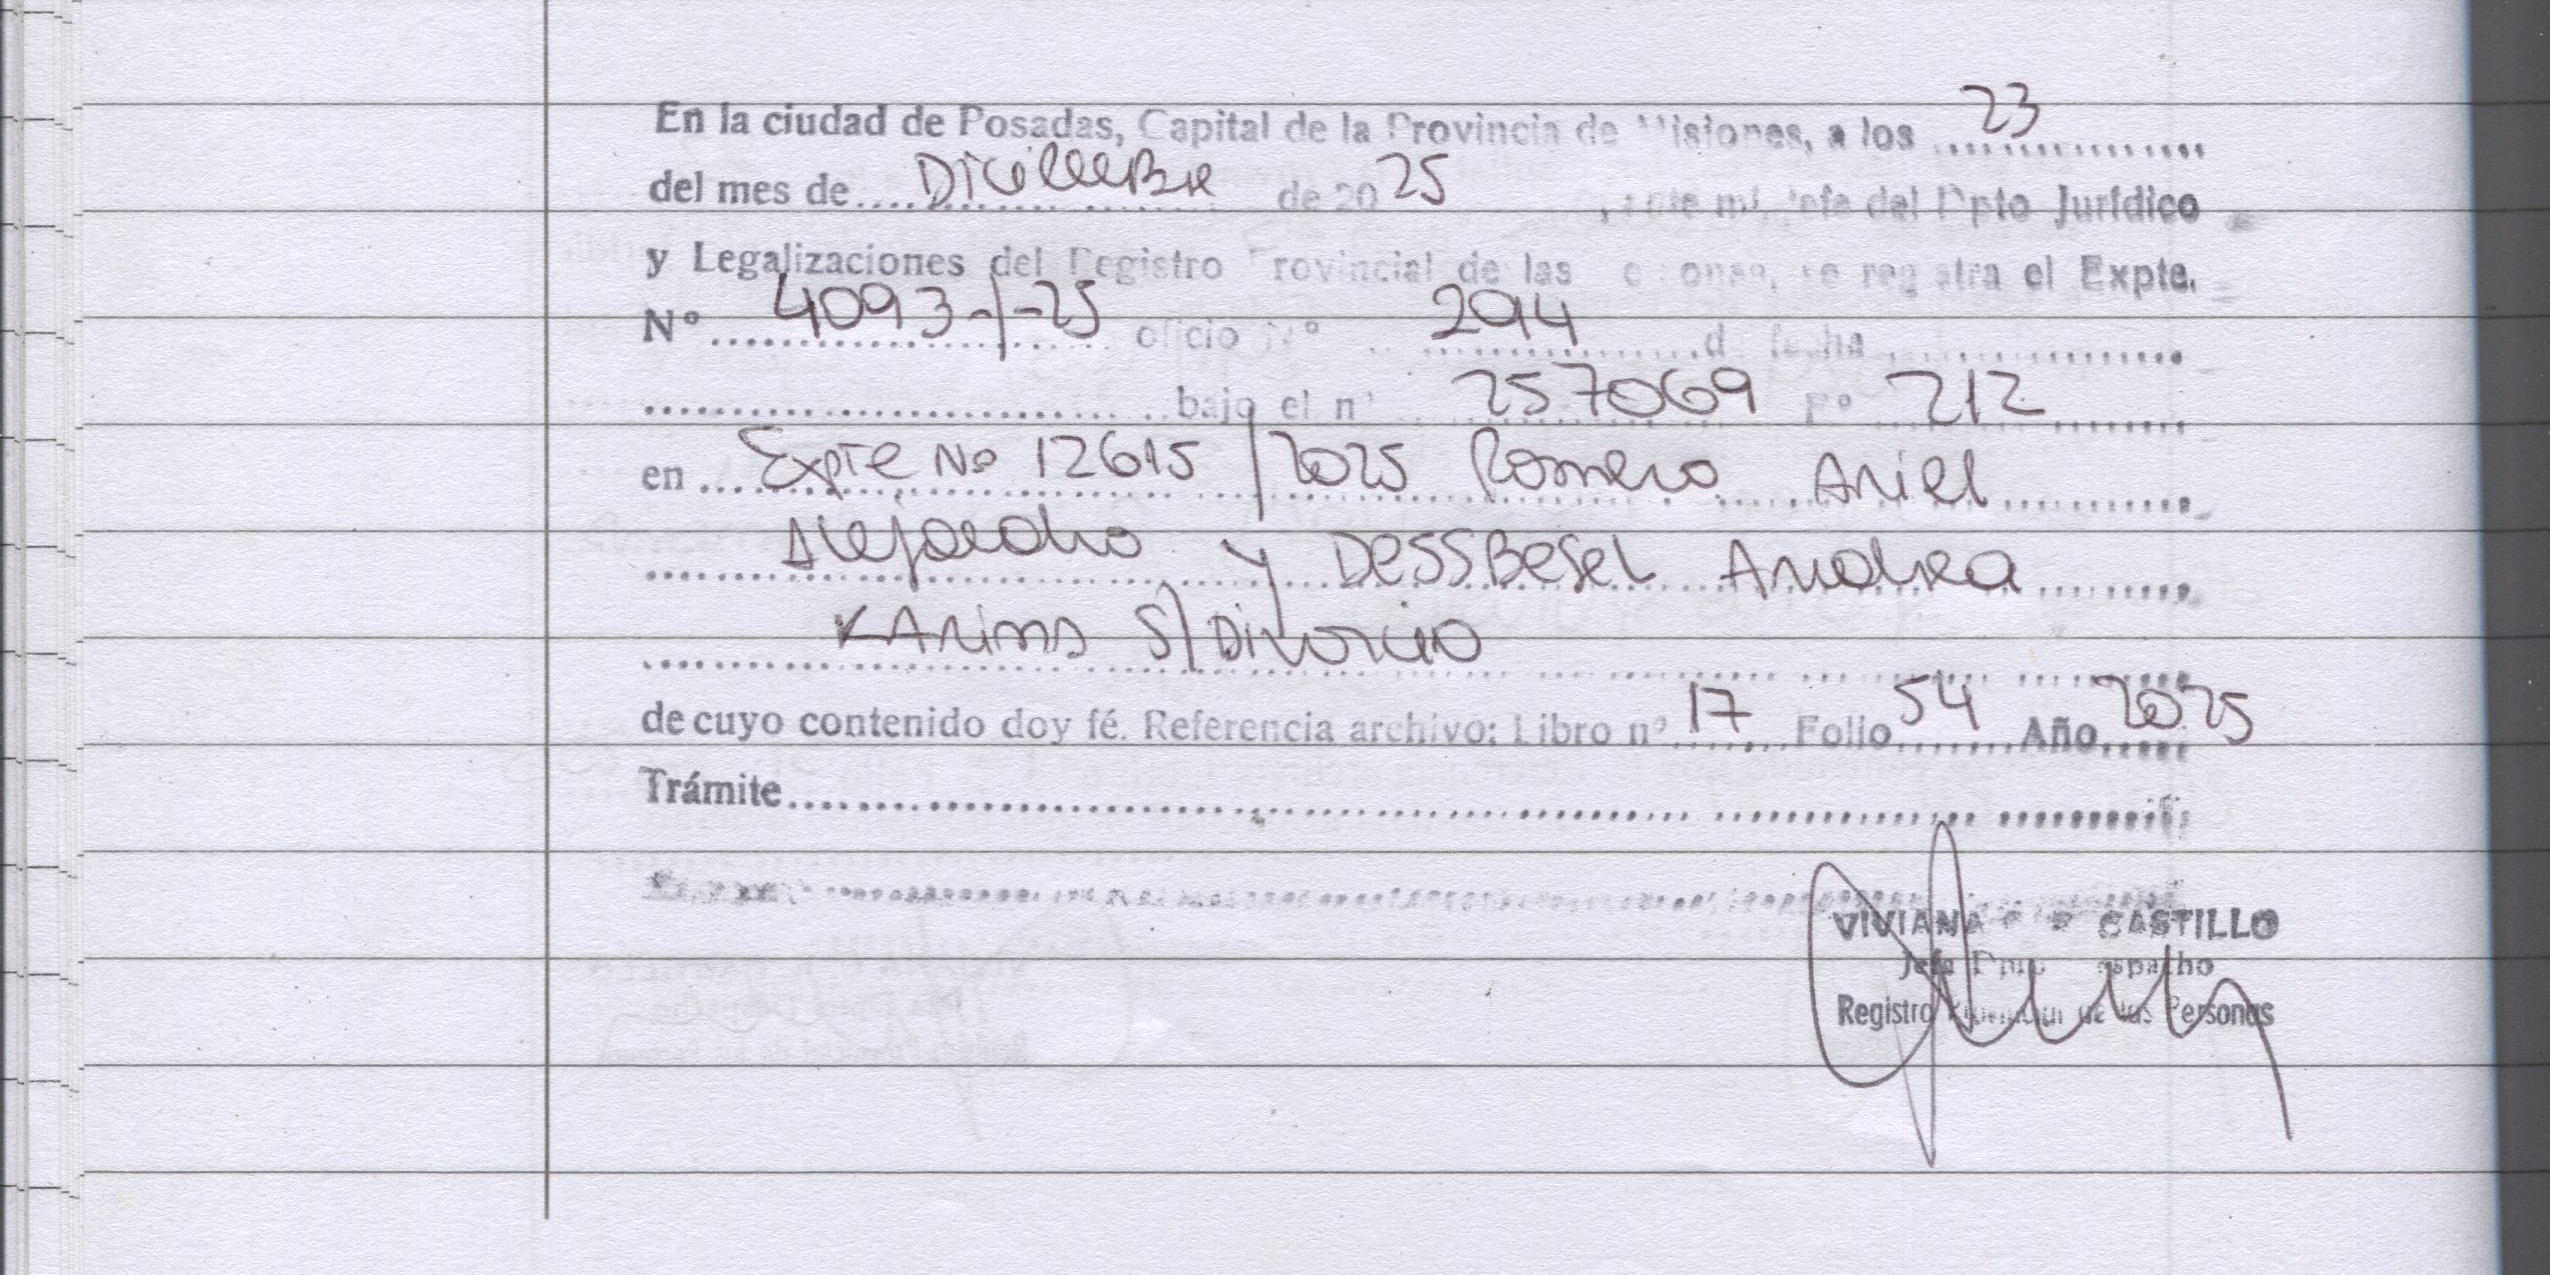 En la ciudad de Posadas, Capital de la Provincia de Misiones, a los 23
del mes de Diciembre de 2025, ante mí, Jefe del Dpto Jurídico
y Legalizaciones del Registro Provincial de las Personas, se registra el Expte.
Nº 4093-/-25 oficio Nº 2914 de fecha
bajo el nº 257069 Fº 212
en Expte No 12615/2025 Romero Ariel
Alejandro y DessBesel Andrea
Karina S/Divorcio
de cuyo contenido doy fé. Referencia archivo: Libro nº 17 Folio 54 Año 2025
Trámite
VIVIANA CASTILLO
Jefa Dpto Despacho
Registro Provincial de las Personas